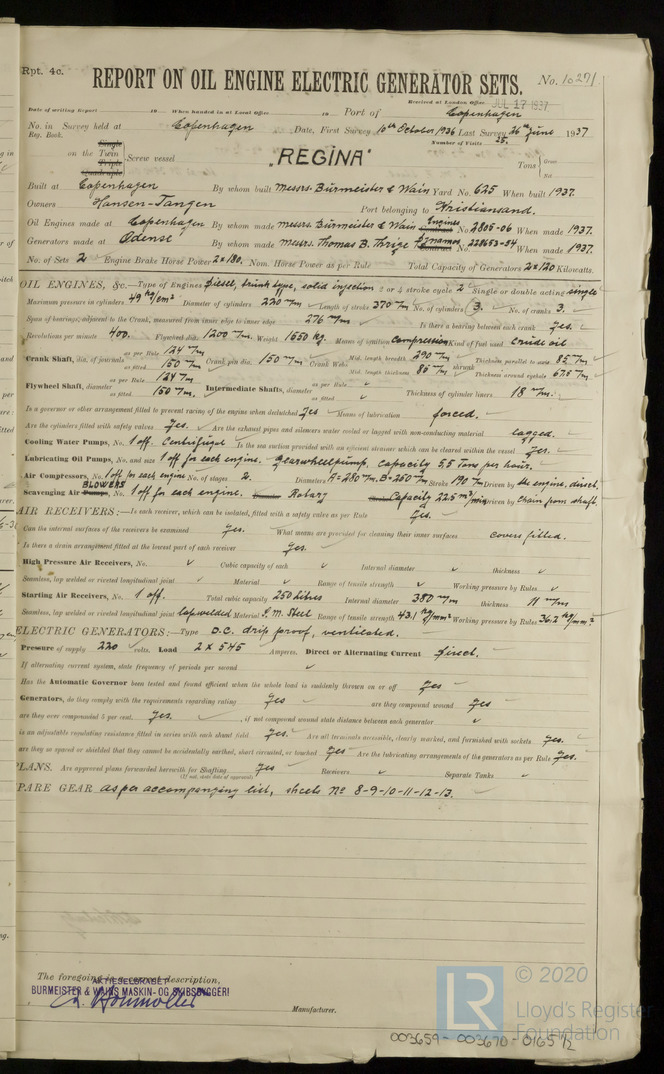 Rpt. 4c.
REPORT ON OIL ENGINE ELECTRIC GENERATOR SETS.
No. 10271.
Received at London Office JUL 17 1937
Date of writing Report 19 When handed in at Local Office 19 Port of Copenhagen
No. in Survey held at Copenhagen Date, First Survey 10th October 1936 Last Survey 26th June 1937
Reg. Book.
Number of Visits 25.
on the Single Twin Triple Quadruple Screw vessel "REGINA" Tons Gross Net
Built at Copenhagen By whom built Messrs. Burmeister & Wain Yard No. 625 When built 1937.
Owners Hansen-Tangen Port belonging to Kristiansand.
Oil Engines made at Copenhagen By whom made Messrs. Burmeister & Wain Engines Contract No. 2805-06 When made 1937.
Generators made at Odense By whom made Messrs. Thomas B. Thrige Dynamos Contract No. 238653-54 When made 1937.
No. of Sets 2 Engine Brake Horse Power 2x180. Nom. Horse Power as per Rule Total Capacity of Generators 2x120 Kilowatts.
OIL ENGINES, &c.—Type of Engines Diesel, trunk type, solid injection 2 or 4 stroke cycle 2 Single or double acting single
Maximum pressure in cylinders 49 kg/cm² Diameter of cylinders 220 m/m Length of stroke 370 m/m No. of cylinders 3. No. of cranks 3.
Span of bearings, adjacent to the Crank, measured from inner edge to inner edge 276 m/m Is there a bearing between each crank Yes.
Revolutions per minute 400. Flywheel dia. 1200 m/m. Weight 1650 kg. Means of ignition compression Kind of fuel used Crude oil
Crank Shaft, dia. of journals as per Rule 124 m/m as fitted 150 m/m Crank pin dia. 150 m/m Crank Webs Mid. length breadth 290 m/m Mid. length thickness 85 m/m shrunk Thickness parallel to axis 85 m/m Thickness around eyehole 67.5 m/m
Flywheel Shaft, diameter as per Rule 124 m/m as fitted 150 m/m. Intermediate Shafts, diameter as per Rule as fitted Thickness of cylinder liners 18 m/m.
Is a governor or other arrangement fitted to prevent racing of the engine when declutched Yes Means of lubrication forced.
Are the cylinders fitted with safety valves Yes. Are the exhaust pipes and silencers water cooled or lagged with non-conducting material lagged.
Cooling Water Pumps, No. 1 off. Centrifugal Is the sea suction provided with an efficient strainer which can be cleared within the vessel Yes.
Lubricating Oil Pumps, No. and size 1 off for each engine. Gearwheelpump, capacity 5,5 Tons per hour.
Air Compressors, No. 1 off for each engine No. of stages 2. Diameters A=280 m/m. B=250 m/m Stroke 190 m/m Driven by the engine, direct.
BLOWERS
Scavenging Air Pumps, No. 1 off for each engine. Rotary Capacity 22,5 m³/min Driven by chain from shaft.
AIR RECEIVERS:—Is each receiver, which can be isolated, fitted with a safety valve as per Rule Yes.
Can the internal surfaces of the receivers be examined Yes. What means are provided for cleaning their inner surfaces covers fitted.
Is there a drain arrangement fitted at the lowest part of each receiver Yes.
High Pressure Air Receivers, No. Cubic capacity of each Internal diameter thickness
Seamless, lap welded or riveted longitudinal joint Material Range of tensile strength Working pressure by Rules
Starting Air Receivers, No. 1 off. Total cubic capacity 250 litres Internal diameter 380 m/m thickness 11 m/m
Seamless, lap welded or riveted longitudinal joint lapwelded Material S.M. Steel Range of tensile strength 43.1 kg/mm² Working pressure by Rules 36.2 kg/mm²
ELECTRIC GENERATORS:—Type D.C. drip proof, ventilated.
Pressure of supply 220 volts. Load 2 x 545 Amperes. Direct or Alternating Current direct.
If alternating current system, state frequency of periods per second
Has the Automatic Governor been tested and found efficient when the whole load is suddenly thrown on or off Yes
Generators, do they comply with the requirements regarding rating Yes are they compound wound Yes
are they over compounded 5 per cent. Yes. , if not compound wound state distance between each generator
is an adjustable regulating resistance fitted in series with each shunt field Yes. Are all terminals accessible, clearly marked, and furnished with sockets Yes.
are they so spaced or shielded that they cannot be accidentally earthed, short circuited, or touched Yes Are the lubricating arrangements of the generators as per Rule Yes.
PLANS. Are approved plans forwarded herewith for Shafting Yes Receivers Separate Tanks
(If not, state date of approval)
SPARE GEAR as per accompanying list, sheets No 8-9-10-11-12-13.
The foregoing is a correct description,
AKTIESELSKABET
BURMEISTER & WAINS MASKIN- OG SKIBSBYGGERI
Manufacturer.
LR
© 2020
Lloyd's Register
Foundation
003659-003670-0165 1/2